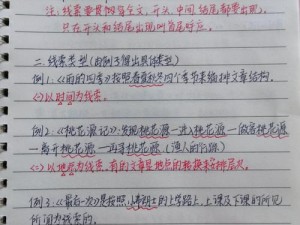 二、线索要贯穿全文,开头、中间、结尾都要出现,
只在开头和结尾出现叫首尾呼应。
二、线索类型(由例子得出具体类型)
例1:《雨的四季》按照春夏秋冬四个季节来编排文章结构。
以时间为线索。
例2:《桃花源记》:发现桃花源→进入桃花源→做客桃花源
→离开桃花源→再寻桃花源(渔人的行踪)
以地点为线索,有的文章是地点的转换来安排层次。
例3:《最后一次》是按照小弗朗士的上学路上、上课及下课的所见
所闻为线索的。